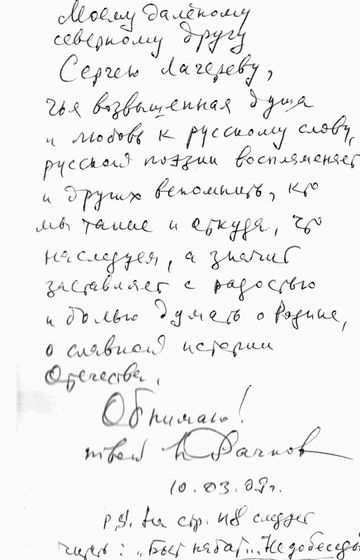 Моему далёкому
северному другу
Сергею Лагереву,
чья возвышенная душа
и любовь к русскому слову,
русской поэзии воспламеняет
и других вспомнить, кто
мы такие и откуда, что
наследуем, а значит
заставляет с радостью
и болью думать о Родине,
о славной истории
Отечества.
Обнимаю!
твой Н. Рачков
10.03.09г.
P.S. На стр. 118 следует
читать: „Быт на быт...